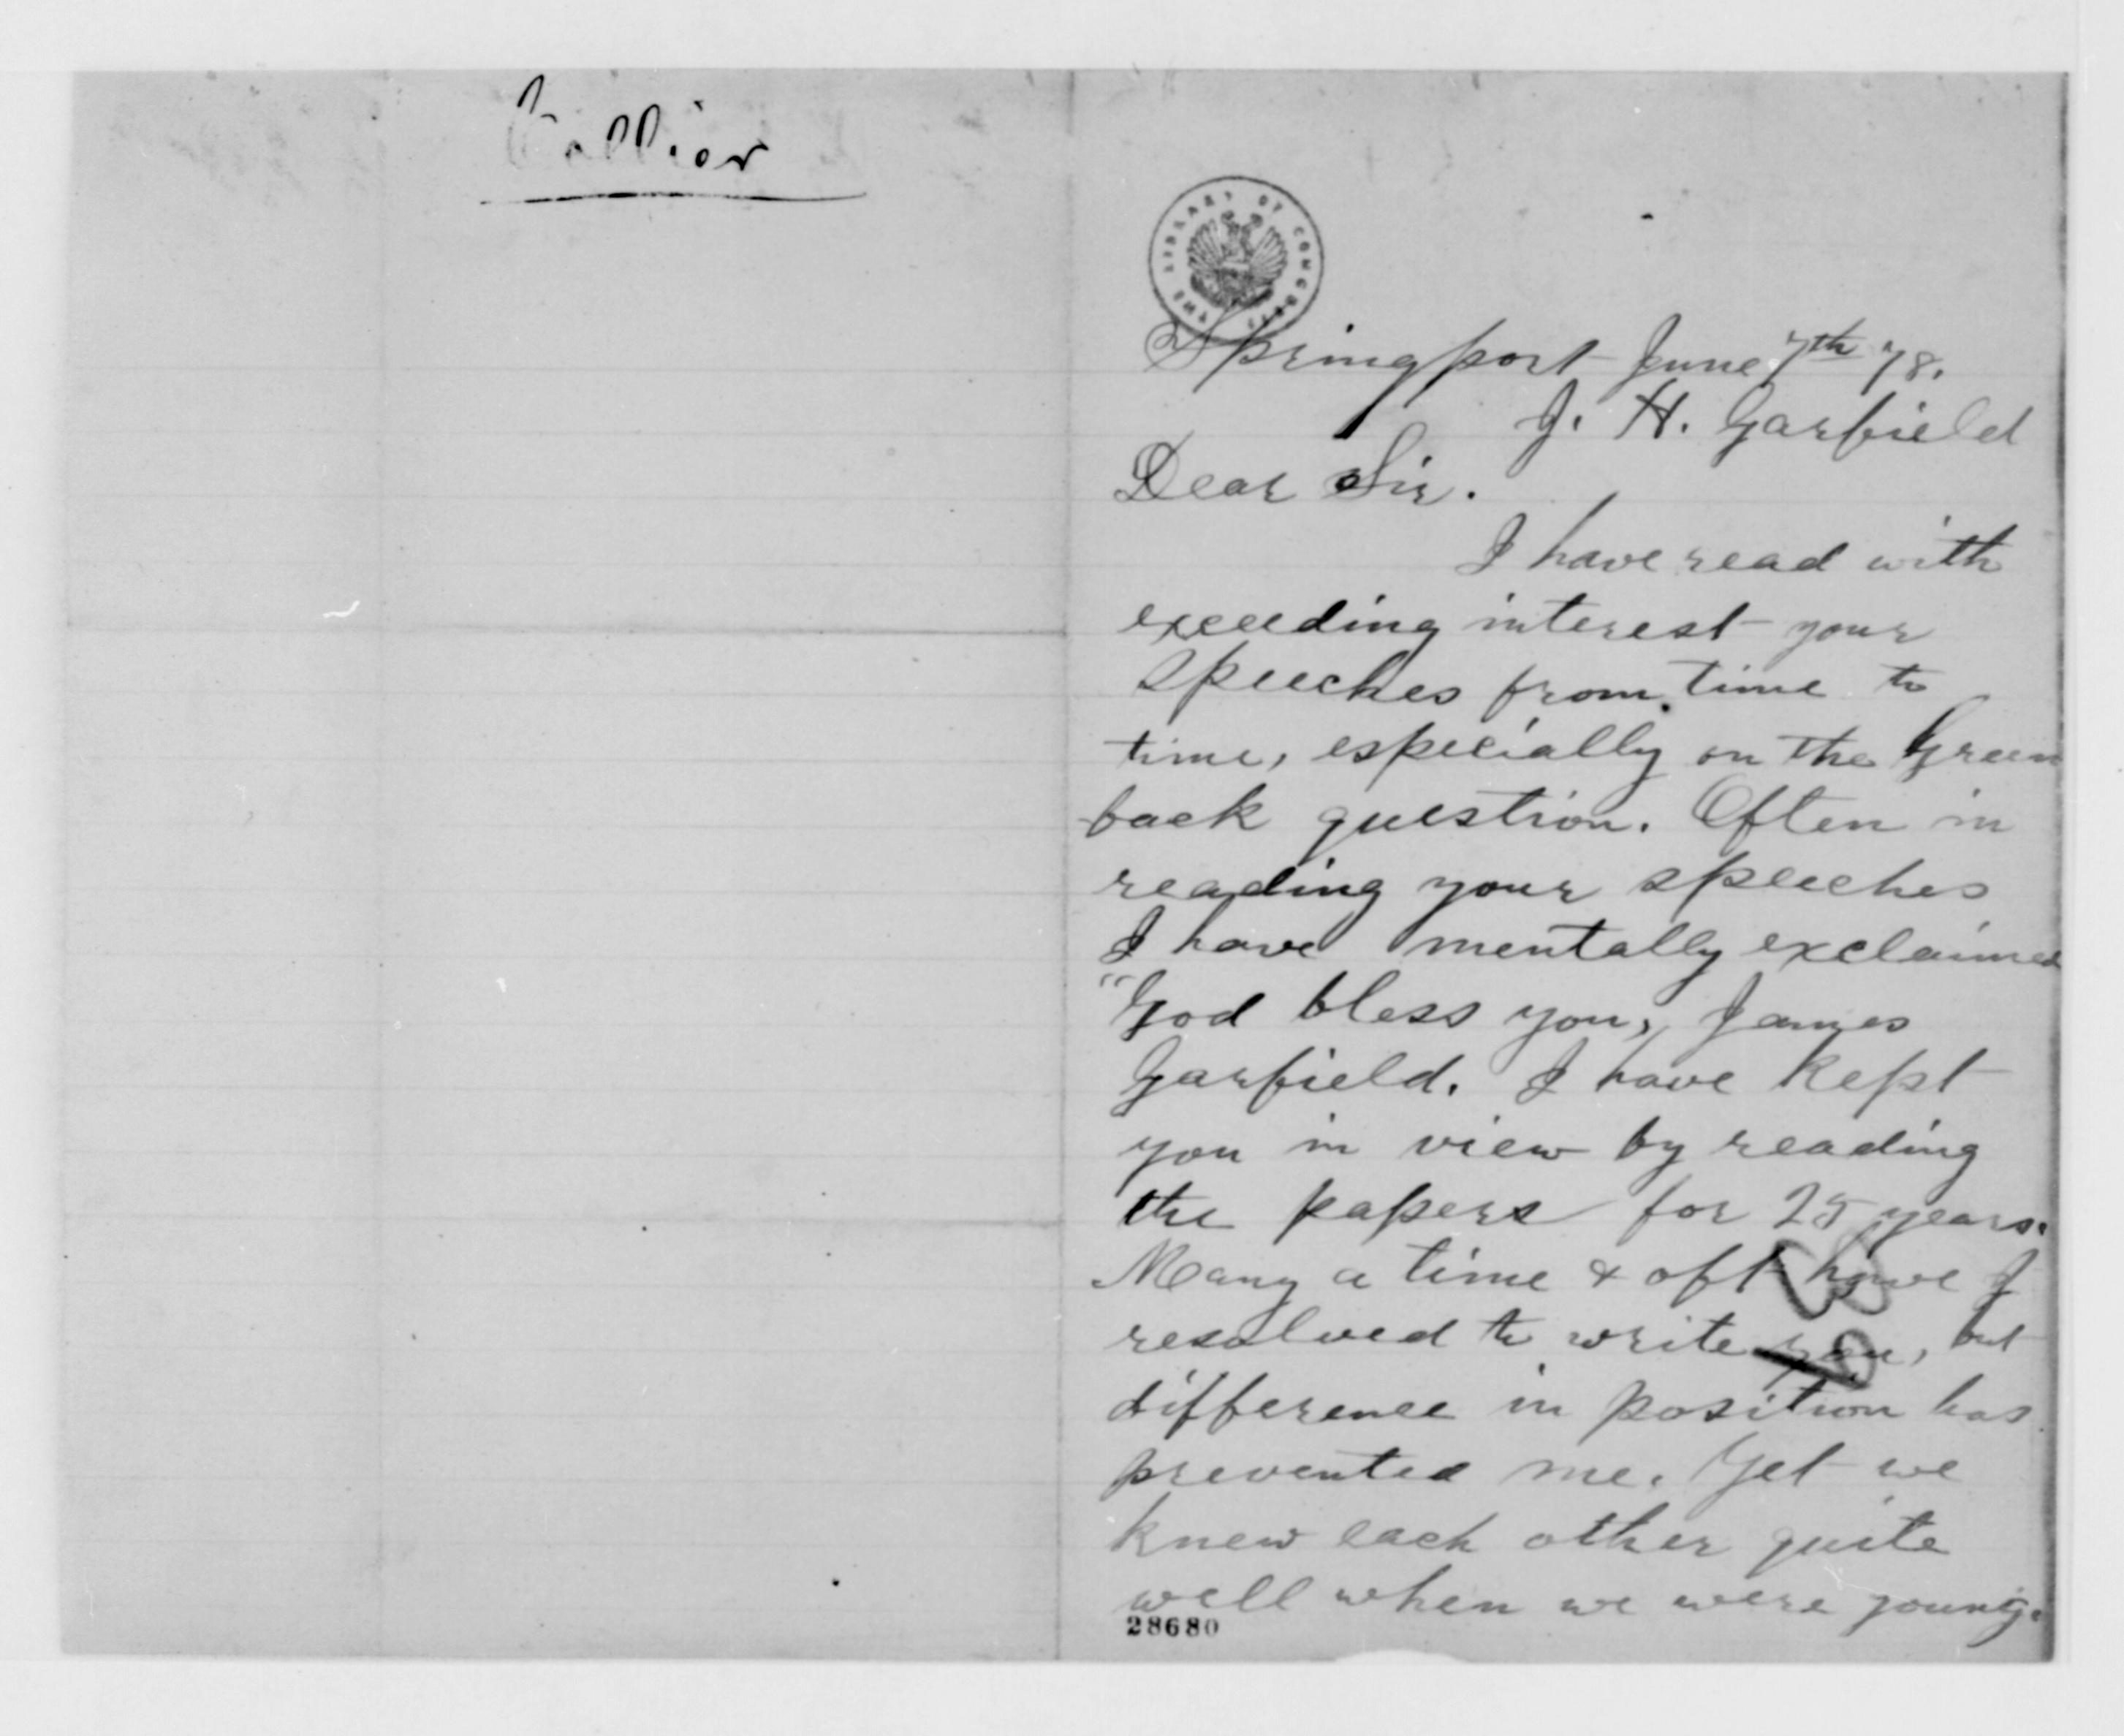 Collier
THE LIBRARY OF CONGRESS
Springport June 7th 78.
J. H. Garfield
Dear Sir.
I have read with
exceeding interest your
speeches from time to
time, especially on the Green
back question. Often in
reading your speeches
I have mentally exclaimed
"God bless you, James
Garfield. I have kept
you in view by reading
the papers for 25 years.
Many a time & oft have I
resolved to write you, but
difference in position has
prevented me. Yet we
knew each other quite
well when we were young.
28680